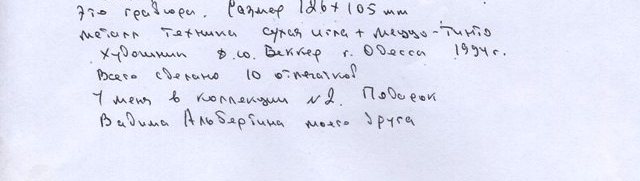 Это гравюра. Размер 126 x 105 mm
металл техника сухая игла + меццо-тинто
Художник Ф.Ю. Беккер г. Одесса 1994 г.
Всего сделано 10 отпечатков
У меня в коллекции № 2. Подарок
Вадима Альбертина моего друга